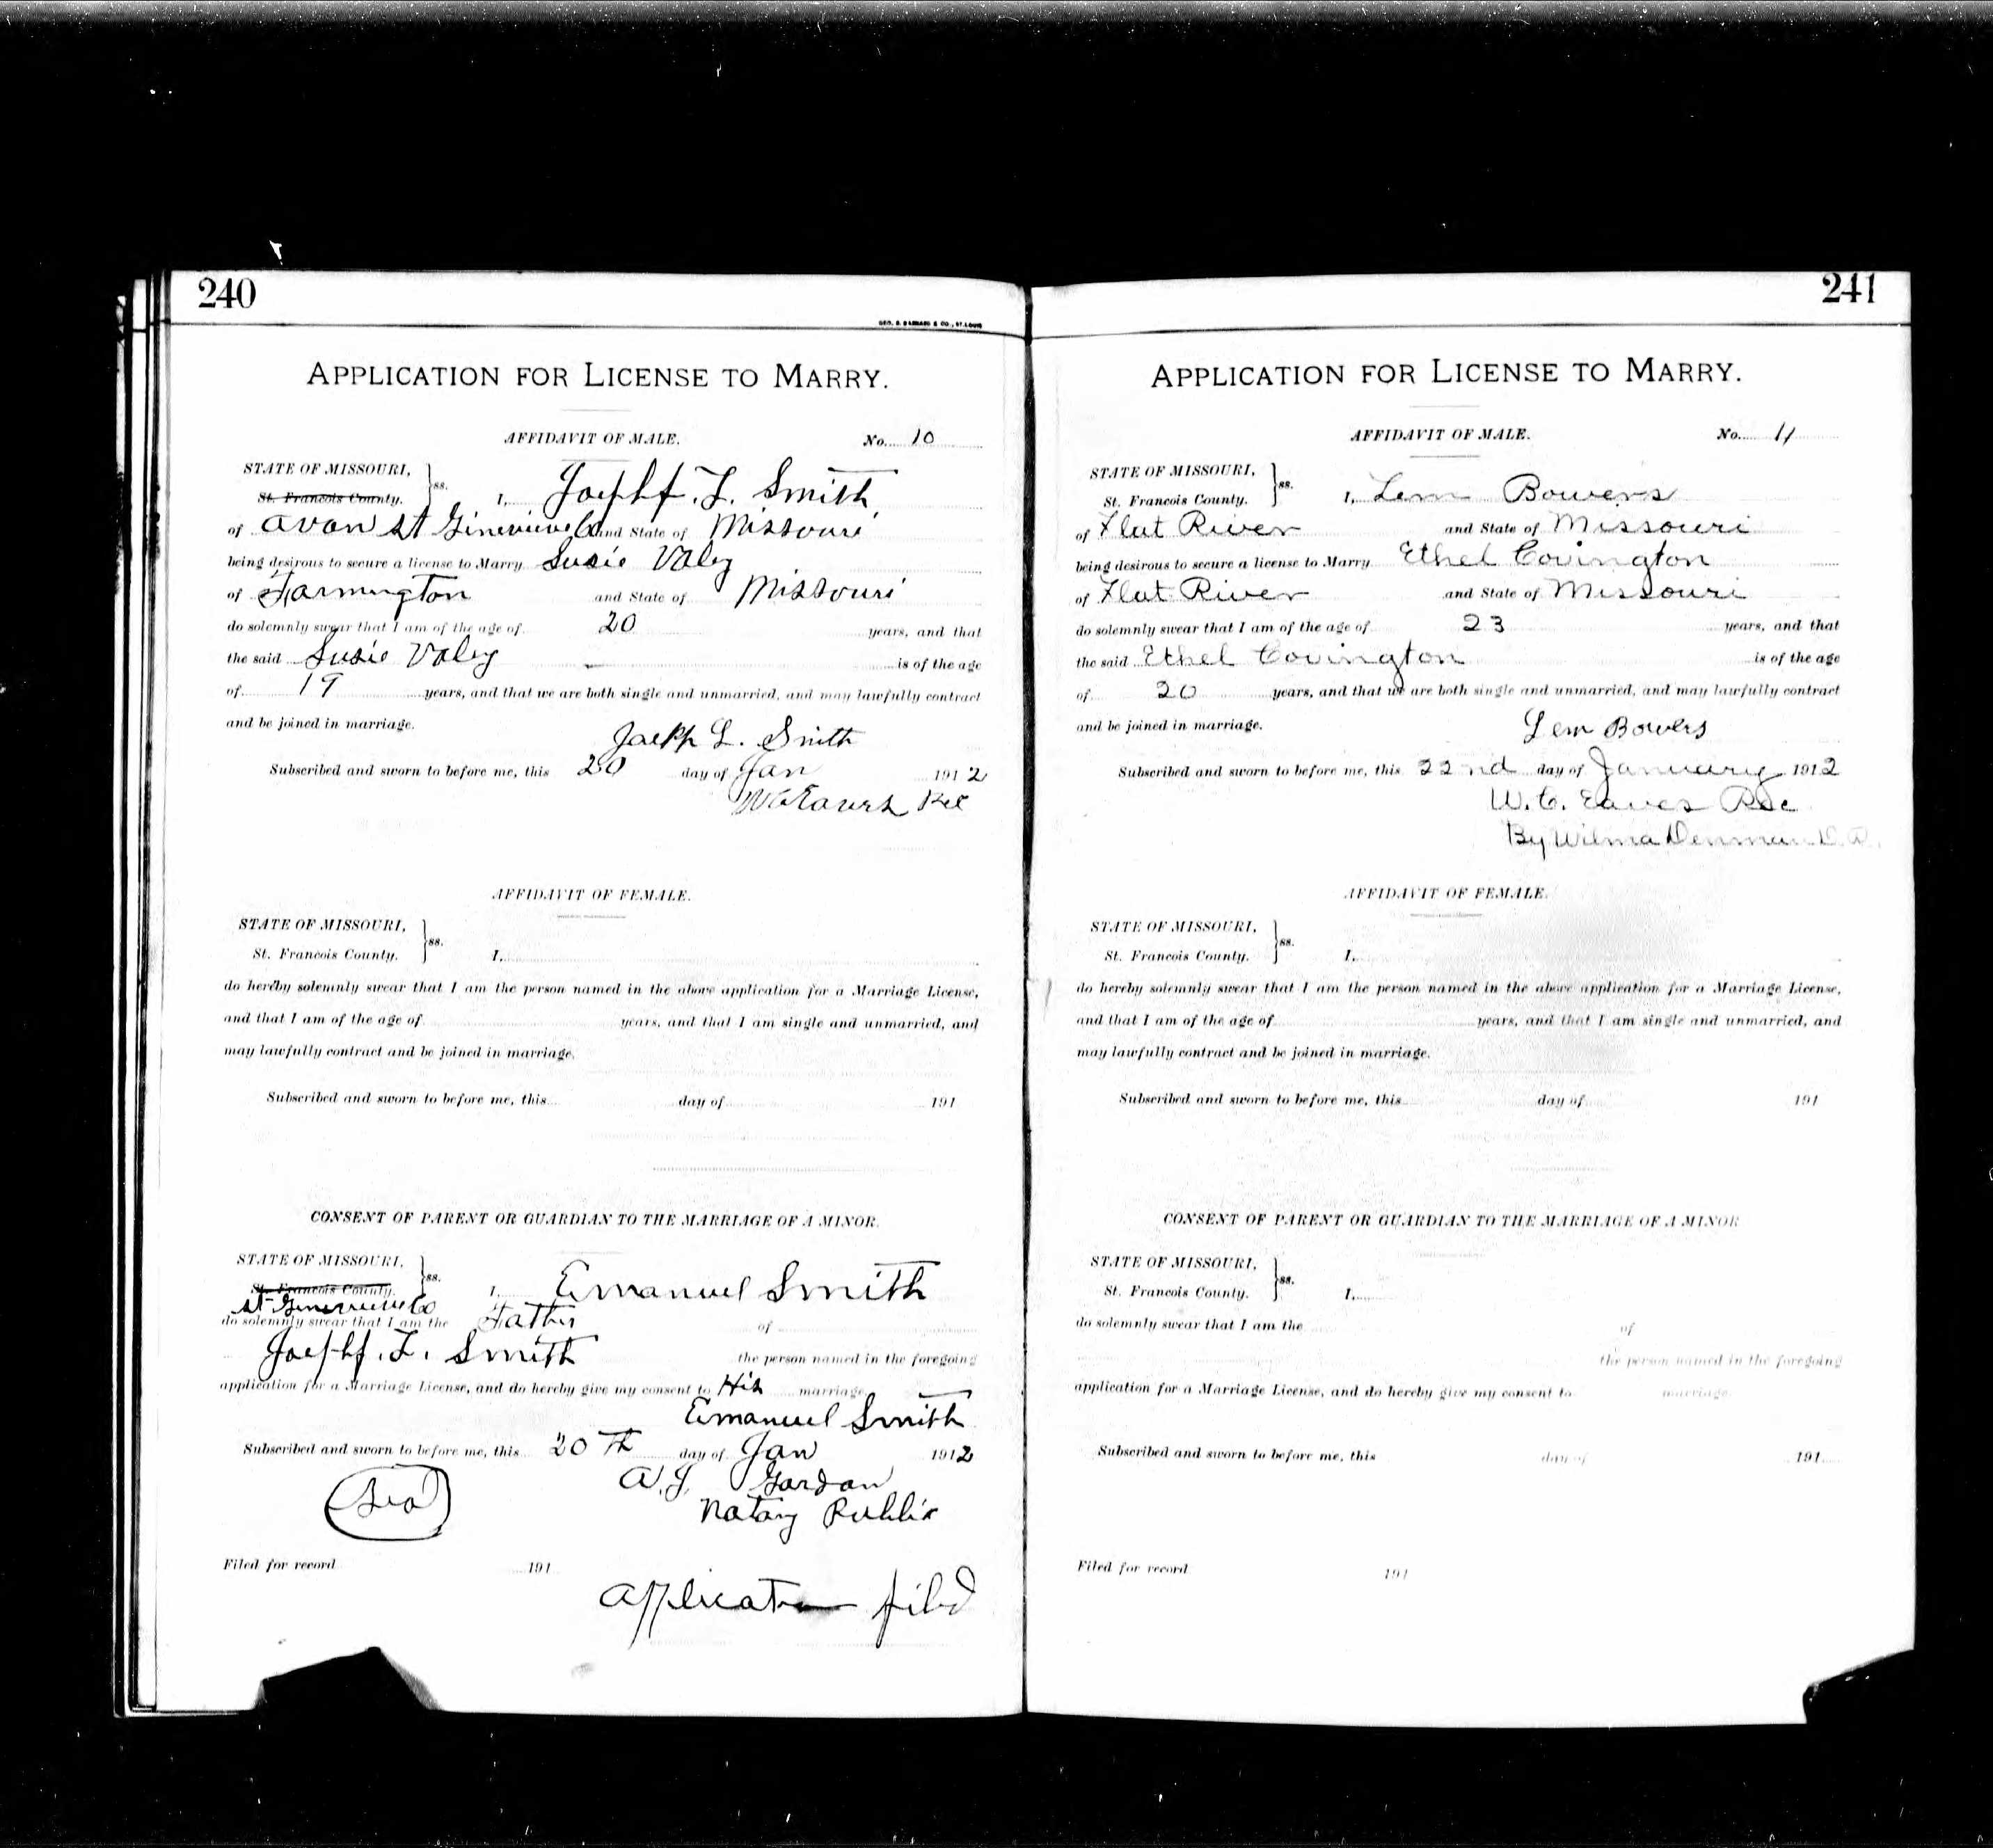 240
GEO. D. BARNARD & CO., ST. LOUIS
APPLICATION FOR LICENSE TO MARRY.
AFFIDAVIT OF MALE. No. 10
STATE OF MISSOURI,
St. Francois County. ss. I, L. Smith
of Avon St Ginevieve Co and State of Missouri
being desirous to secure a license to Marry Susie Valey
of Farmington and State of Missouri
do solemnly swear that I am of the age of 20 years, and that
the said Susie Valey is of the age
of 19 years, and that we are both single and unmarried, and may lawfully contract
and be joined in marriage.
L. Smith
Subscribed and sworn to before me, this 20 day of Jan 1912
Rec
AFFIDAVIT OF FEMALE.
STATE OF MISSOURI,
St. Francois County. ss. I,
do hereby solemnly swear that I am the person named in the above application for a Marriage License,
and that I am of the age of years, and that I am single and unmarried, and
may lawfully contract and be joined in marriage.
Subscribed and sworn to before me, this day of 191
CONSENT OF PARENT OR GUARDIAN TO THE MARRIAGE OF A MINOR.
STATE OF MISSOURI,
St. Francois County. ss. I, Emanuel Smith
St Co
do solemnly swear that I am the Father of
L. Smith the person named in the foregoing
application for a Marriage License, and do hereby give my consent to His marriage.
Emanuel Smith
Subscribed and sworn to before me, this 20th day of Jan 1912
A. J. Gordon
Notary Public
Filed for record 191
Application filed
241
APPLICATION FOR LICENSE TO MARRY.
AFFIDAVIT OF MALE. No. 11
STATE OF MISSOURI,
St. Francois County. ss. I, Lem Bowers
of Flat River and State of Missouri
being desirous to secure a license to Marry Ethel Covington
of Flat River and State of Missouri
do solemnly swear that I am of the age of 23 years, and that
the said Ethel Covington is of the age
of 20 years, and that we are both single and unmarried, and may lawfully contract
and be joined in marriage.
Lem Bowers
Subscribed and sworn to before me, this 22nd day of January 1912
W. C. Eaves Rec
By Wilma Denman
AFFIDAVIT OF FEMALE.
STATE OF MISSOURI,
St. Francois County. ss. I,
do hereby solemnly swear that I am the person named in the above application for a Marriage License,
and that I am of the age of years, and that I am single and unmarried, and
may lawfully contract and be joined in marriage.
Subscribed and sworn to before me, this day of 191
CONSENT OF PARENT OR GUARDIAN TO THE MARRIAGE OF A MINOR
STATE OF MISSOURI,
St. Francois County. ss. I,
do solemnly swear that I am the of
the person named in the foregoing
application for a Marriage License, and do hereby give my consent to marriage.
Subscribed and sworn to before me, this day of 191
Filed for record 191